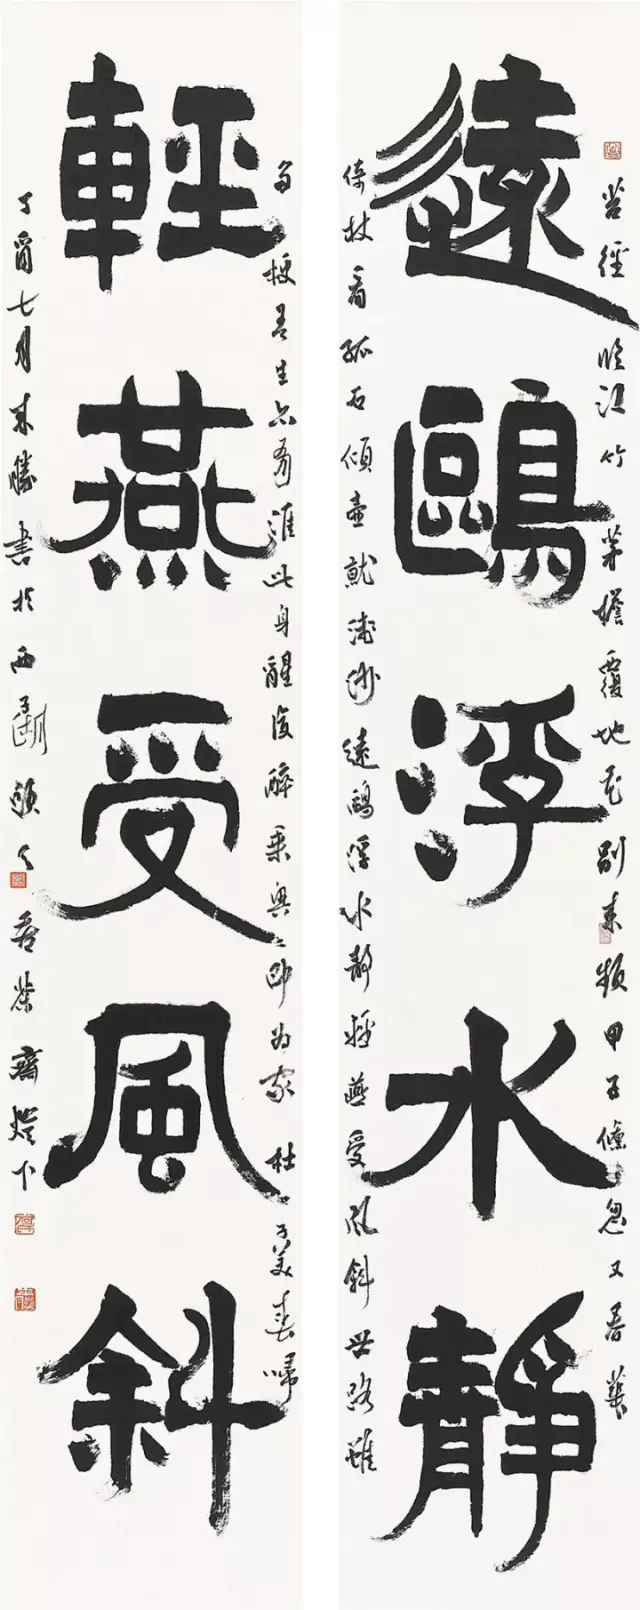 遠鷗浮水靜
苔徑臨江竹茅簷覆地花別來頻甲子倏忽又春華
倚杖看孤石傾壺就淺沙遠鷗浮水靜輕燕受風斜世路雖
輕燕受風斜
多梗吾生亦有涯此身醒復醉乘興即為家杜子美春歸
丁酉七月勝書於西子湖齋燈下